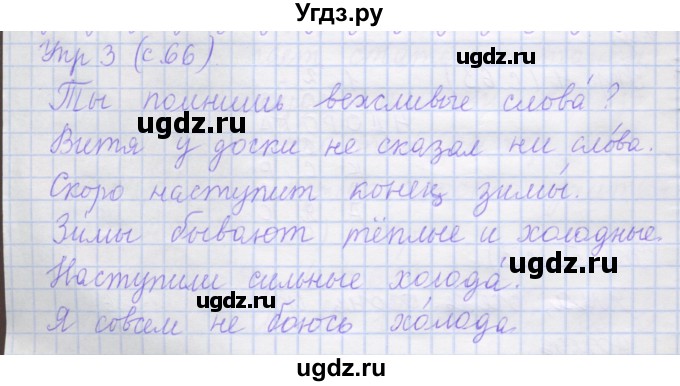 Угдз.ру
Упр 3 (с.66)
ugdz.ru
Ты помнишь вежливые слова́?
ugdz.ru
ugdz.ru
Витя у доски не сказал ни сло́ва.
Скоро наступит конец зимы́.
Зи́мы бывают тёплые и холодные.
ugdz.ru
Наступили сильные холода́.
ugdz.ru
Я совсем не боюсь хо́лода.
ugdz.ru